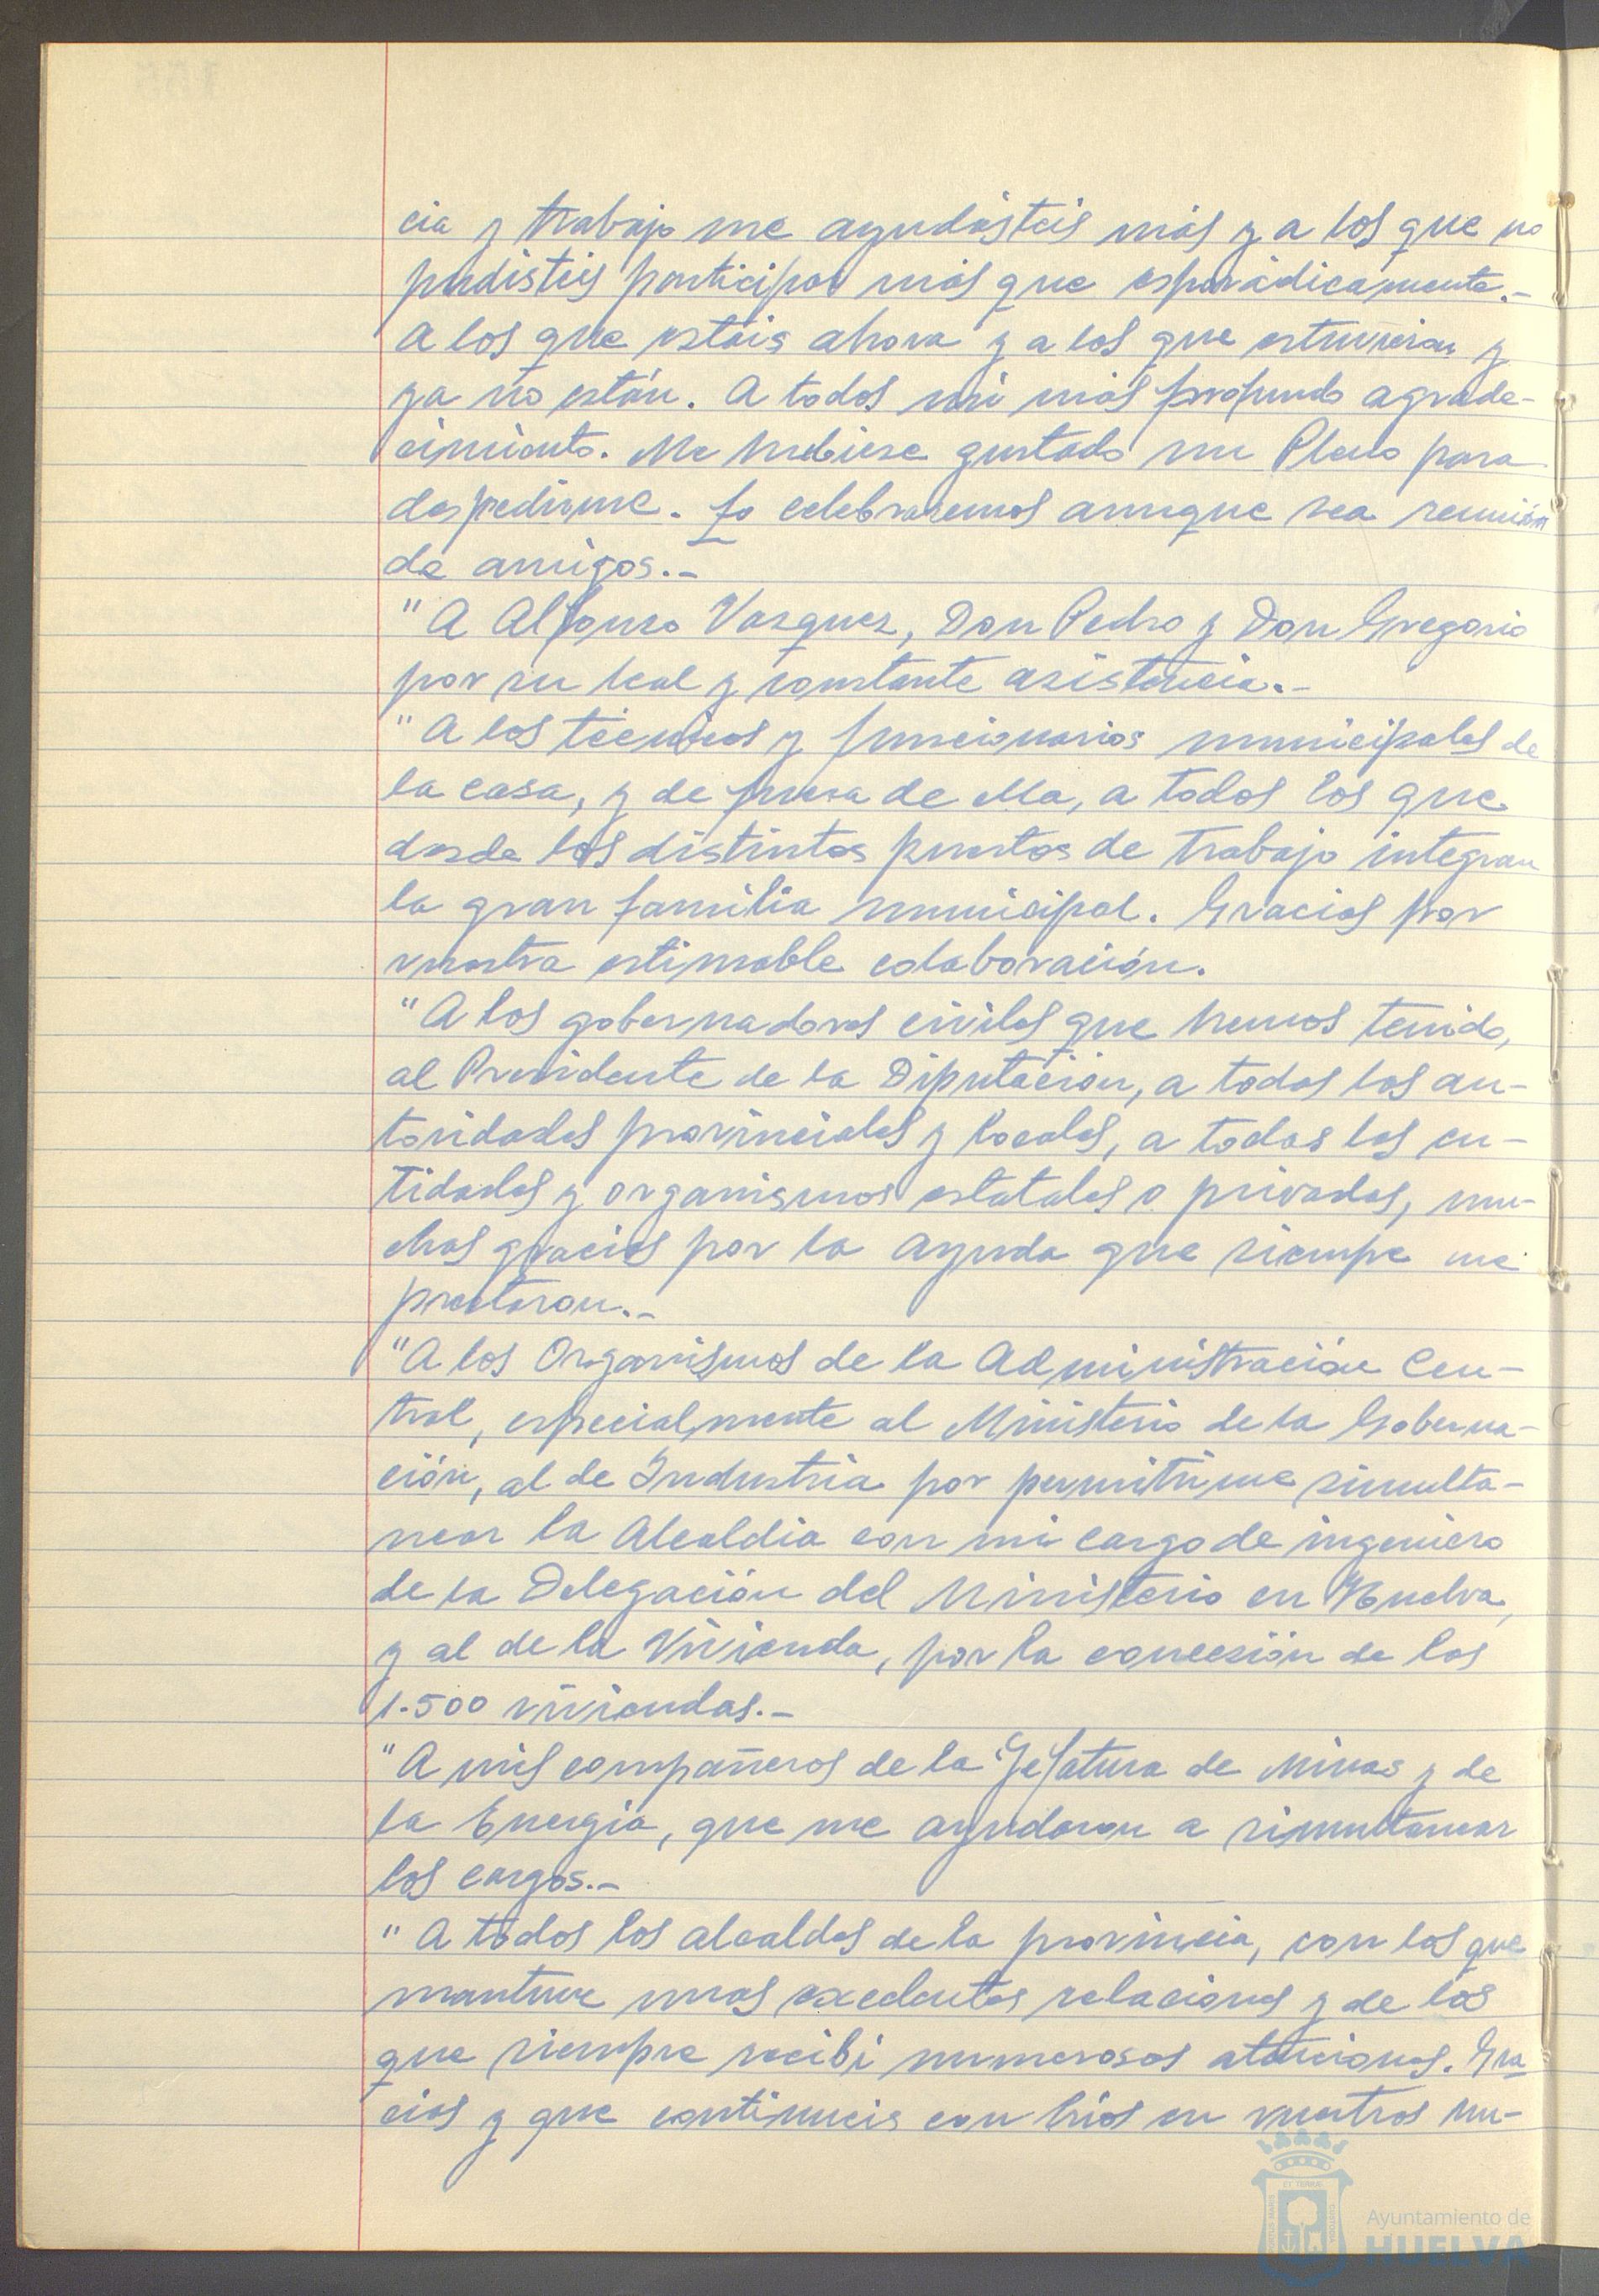 cia y trabajo me ayudásteis más y a los que no
pudisteis participar más que esporádicamente.-
A los que estáis ahora y a los que estuvieron y
ya no están. A todos mi más profundo agrade-
cimiento. Me hubiese gustado un Pleno para
despedirme. Lo celebraremos aunque sea reunión
de amigos.-
"A Alfonso Vazquez, Don Pedro y Don Gregorio
por su leal y constante asistencia.-
"A los técnicos y funcionarios municipales de
la casa, y de fuera de ella, a todos los que
desde los distintos puestos de trabajo integran
la gran familia municipal. Gracias por
vuestra estimable colaboración.
"A los gobernadores civiles que hemos tenido,
al Presidente de la Diputación, a todas las au-
toridades provinciales y locales, a todas las en-
tidades y organismos estatales o privados, mu-
chas gracias por la ayuda que siempre me
prestaron.-
"A los Organismos de la Administración Cen-
tral, especialmente al Ministerio de la Goberna-
ción, al de Industria por permitirme simulta-
near la Alcaldia con mi cargo de ingeniero
de la Delegación del Ministerio en Huelva,
y al de la Vivienda, por la concesión de las
1.500 viviendas.-
"A mis compañeros de la Jefatura de Minas y de
la Energia, que me ayudaron a simultanear
los cargos.-
"A todos los alcaldes de la provincia, con los que
mantuve unas excelentes relaciones y de los
que siempre recibi numerosas atenciones. Gra
cias y que continueis con brios en vuestros mu-
Ayuntamiento de
HUELVA